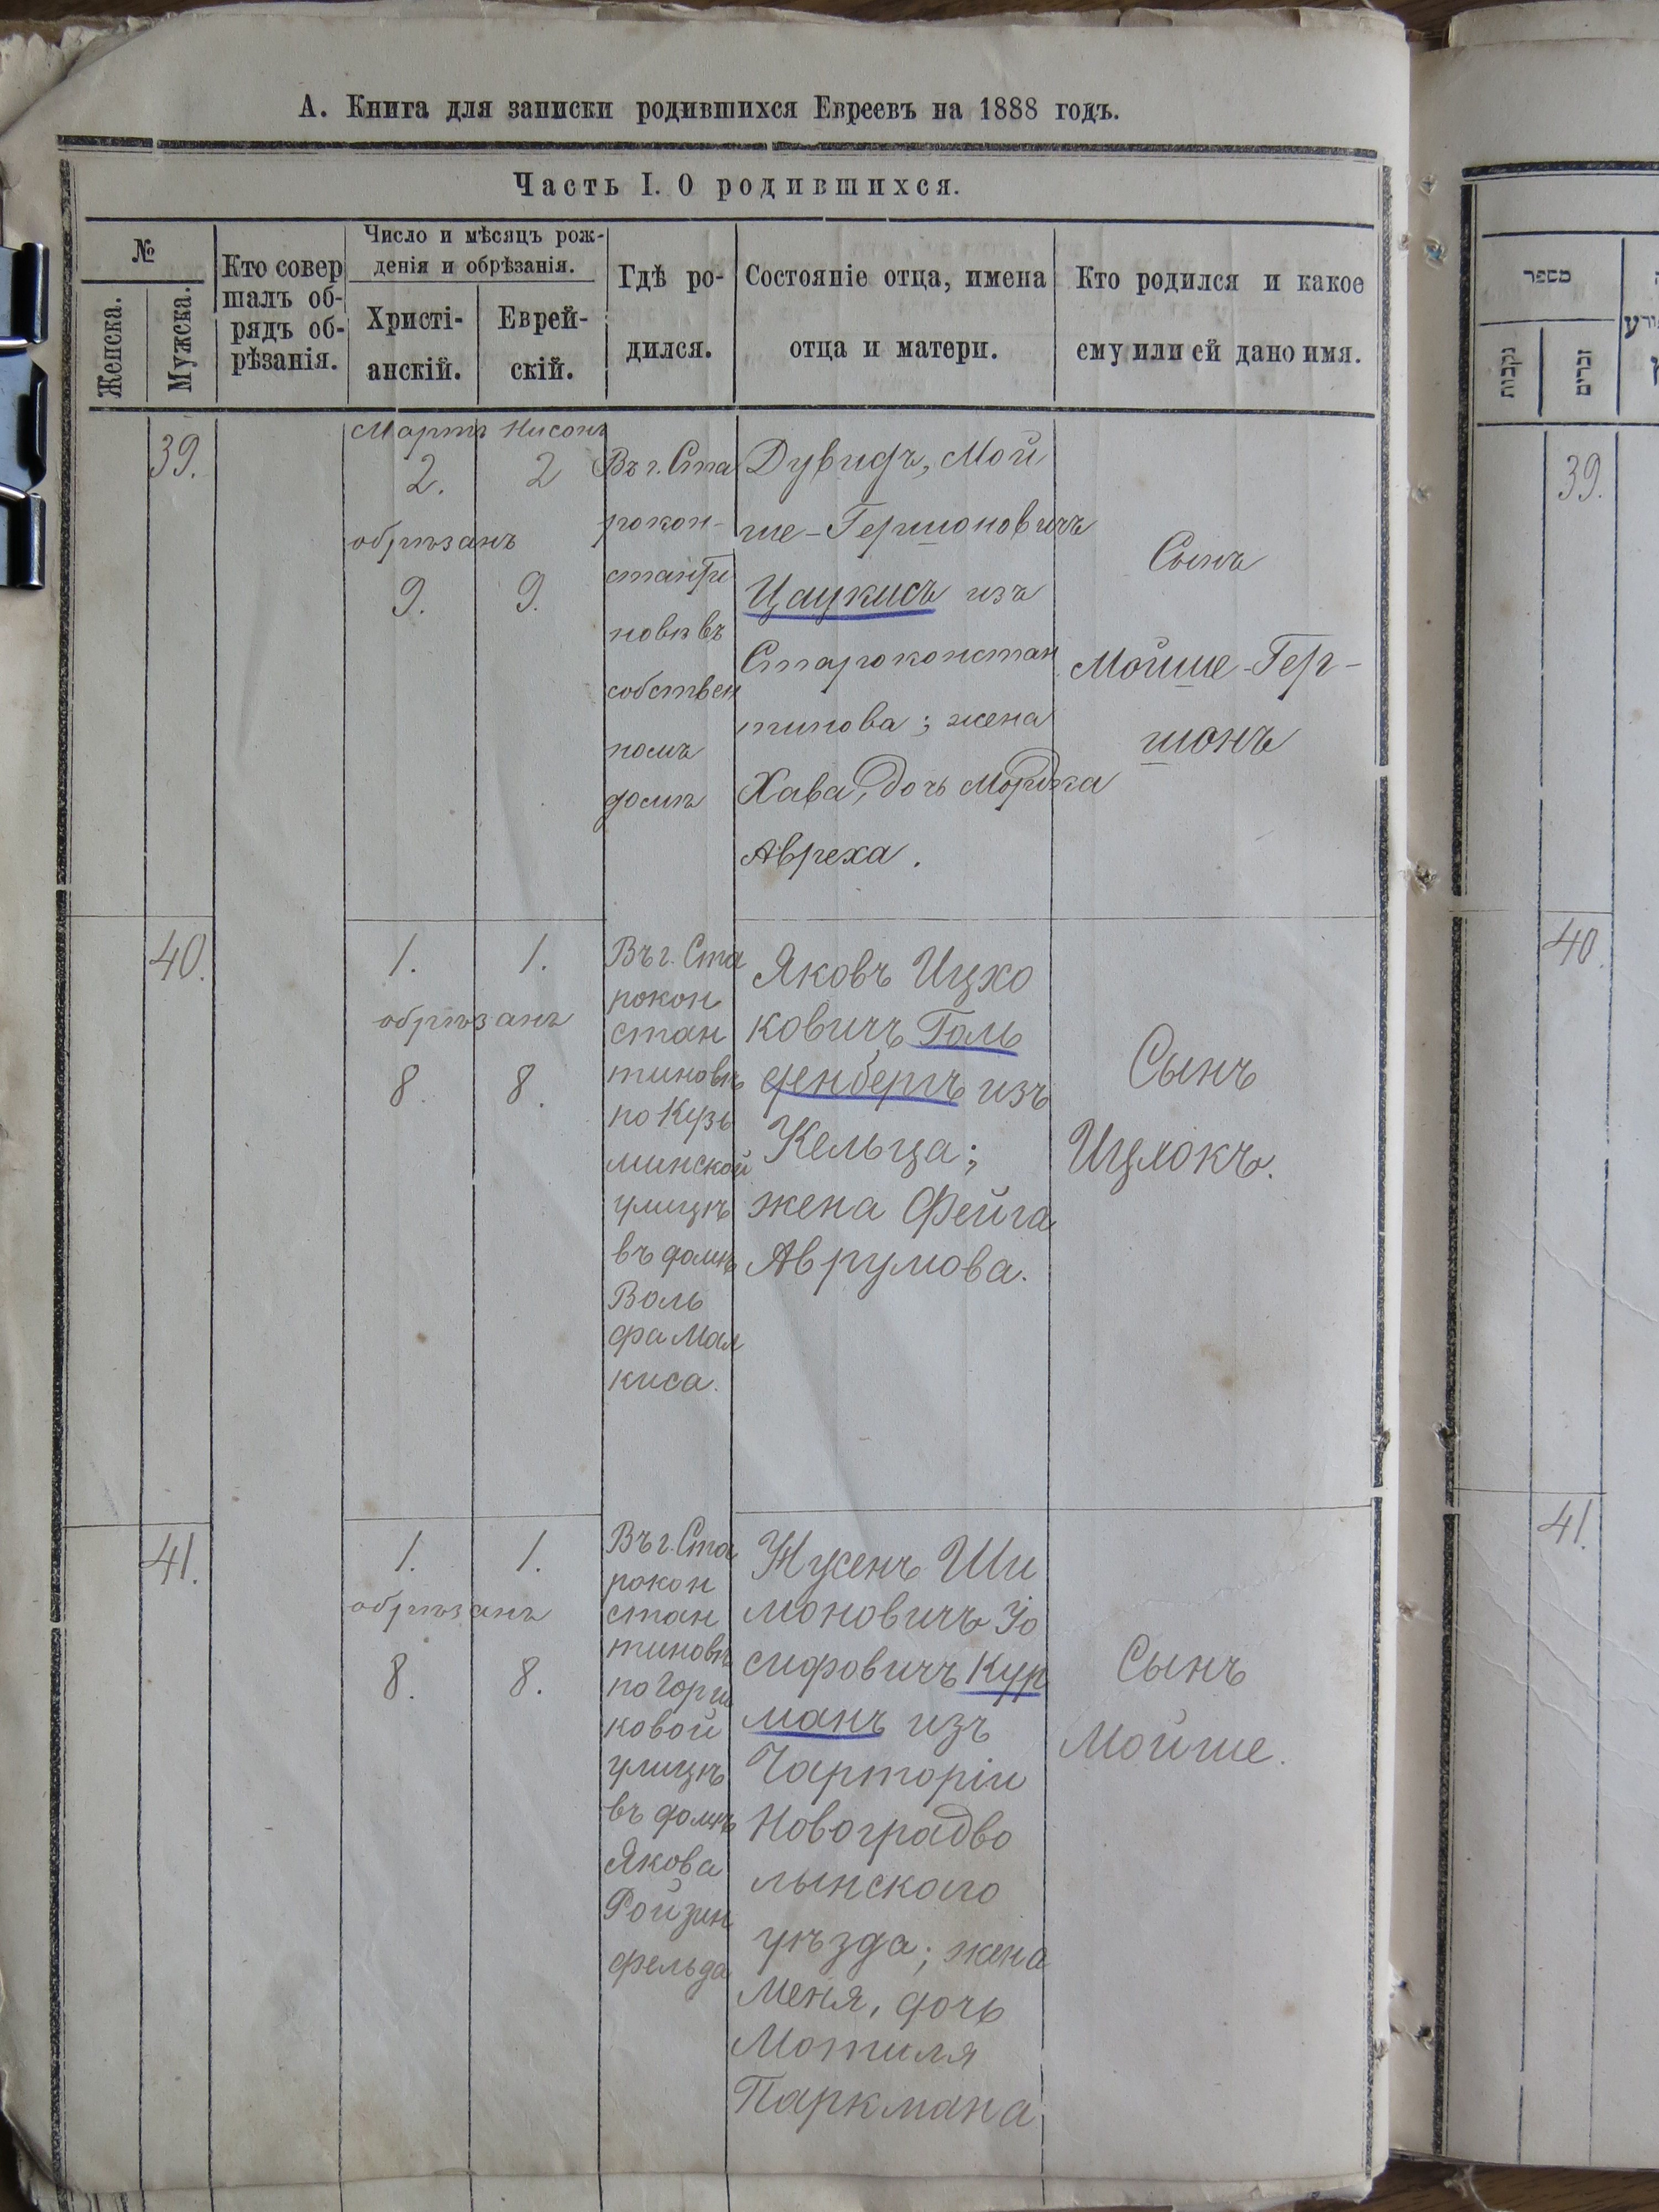 А. Книга для записки родившихся Евреевъ на 1888 годъ.
Часть I. О родившихся.
№
Женска.
Мужска.
Кто совер
шалъ об-
рядъ об-
рѣзанія.
Число и мѣсяцъ рож-
денія и обрѣзанія.
Христі-
анскій.
Еврей-
скій.
Гдѣ ро-
дился.
Состояніе отца, имена
отца и матери.
Кто родился и какое
ему или ей дано имя.
39.
Мартъ Нисонъ
2. 2
обрѣзанъ
9. 9.
Въ г. Ста
рокон-
станти
новѣ въ
собствен
номъ
домѣ
Дувидъ, Мой
ше-Гершоновичъ
Цаукисъ изъ
Староконстан
тинова; жена
Хава, дочь Мордка
Авреха.
Сынъ
Мойше-Гер-
шонъ
40.
1. 1.
обрѣзанъ
8. 8.
Въ г. Ста
рокон
стан
тиновѣ
по Кузь
минской
улицѣ
въ домѣ
Воль
фа Мал
киса.
Яковъ Ицко
ковичъ Голь
денбергъ изъ
Кельца;
жена Фейга
Аврумова.
Сынъ
Ицлокъ.
41.
1. 1.
обрѣзанъ
8. 8.
Въ г. Ста
рокон
стан
тиновѣ
по Горш
ковой
улицѣ
въ домѣ
Якова
Ройзин
фельда
Нусенъ Ши
моновичъ Іо
сифовичъ Кур
манъ изъ
Чарторіи
Новоградво
лынскаго
уѣзда; жена
Меня, дочь
Мотиля
Паркмана
Сынъ
Мойше.
מספר
נקבות
זכרים
39.
40.
41.